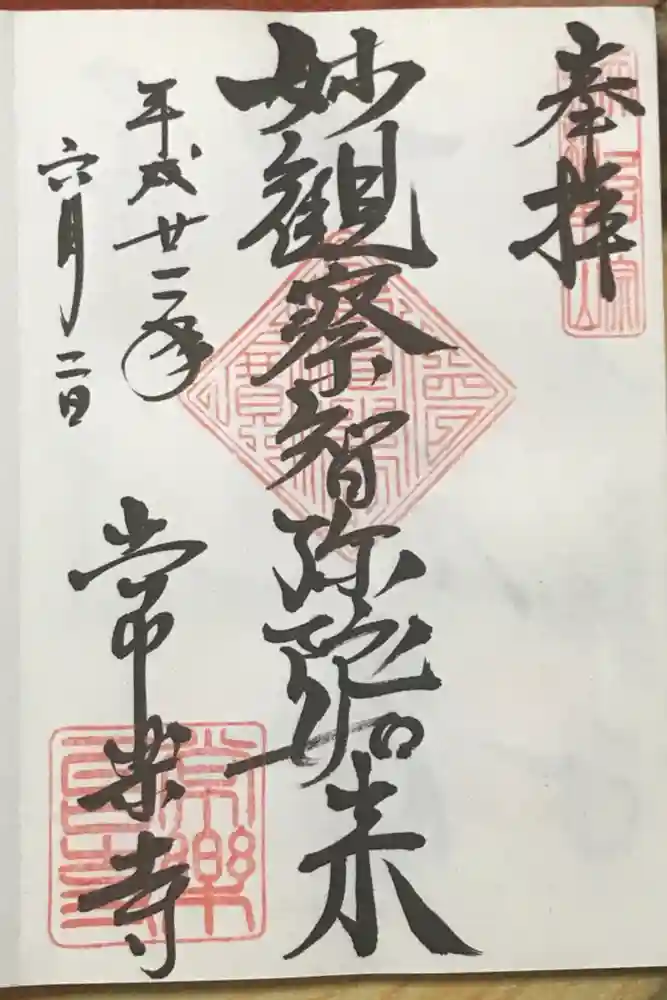 奉拝
妙観察智弥陀如来
平成廿二年
六月二日
常楽寺
常樂寺